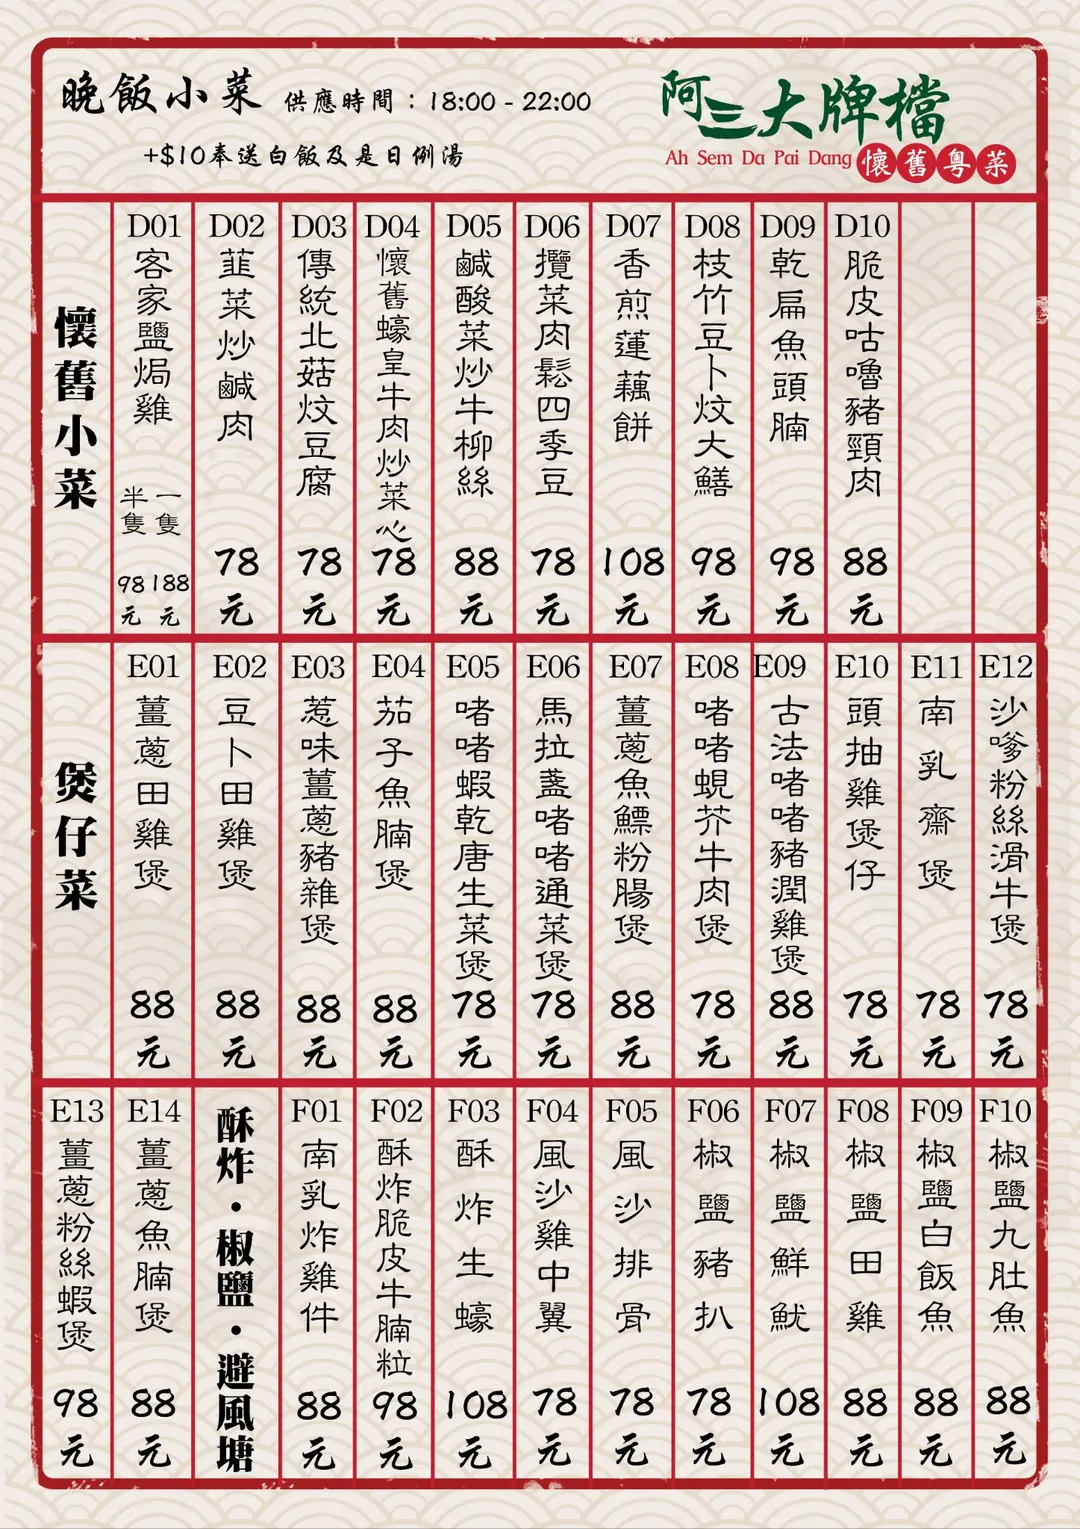 晚飯小菜 供應時間：18:00 - 22:00
+$10奉送白飯及是日例湯
阿三大牌檔
Ah Sem Da Pai Dang 懷舊粵菜
懷舊小菜
D01 客家鹽焗雞 半隻 98元 一隻 188元
D02 韮菜炒鹹肉 78元
D03 傳統北菇炆豆腐 78元
D04 懷舊蠔皇牛肉炒菜心 78元
D05 鹹酸菜炒牛柳絲 88元
D06 攬菜肉鬆四季豆 78元
D07 香煎蓮藕餅 108元
D08 枝竹豆卜炆大鱔 98元
D09 乾扁魚頭腩 98元
D10 脆皮咕嚕豬頸肉 88元
煲仔菜
E01 薑蔥田雞煲 88元
E02 豆卜田雞煲 88元
E03 惹味薑蔥豬雜煲 88元
E04 茄子魚腩煲 88元
E05 啫啫蝦乾唐生菜煲 78元
E06 馬拉盞啫啫通菜煲 78元
E07 薑蔥魚鰾粉腸煲 88元
E08 啫啫蜆芥牛肉煲 78元
E09 古法啫啫豬潤雞煲 88元
E10 頭抽雞煲仔 78元
E11 南乳齋煲 78元
E12 沙嗲粉絲滑牛煲 78元
E13 薑蔥粉絲蝦煲 98元
E14 薑蔥魚腩煲 88元
酥炸・椒鹽・避風塘
F01 南乳炸雞件 88元
F02 酥炸脆皮牛腩粒 98元
F03 酥炸生蠔 108元
F04 風沙雞中翼 78元
F05 風沙排骨 78元
F06 椒鹽豬扒 78元
F07 椒鹽鮮魷 108元
F08 椒鹽田雞 88元
F09 椒鹽白飯魚 88元
F10 椒鹽九肚魚 88元